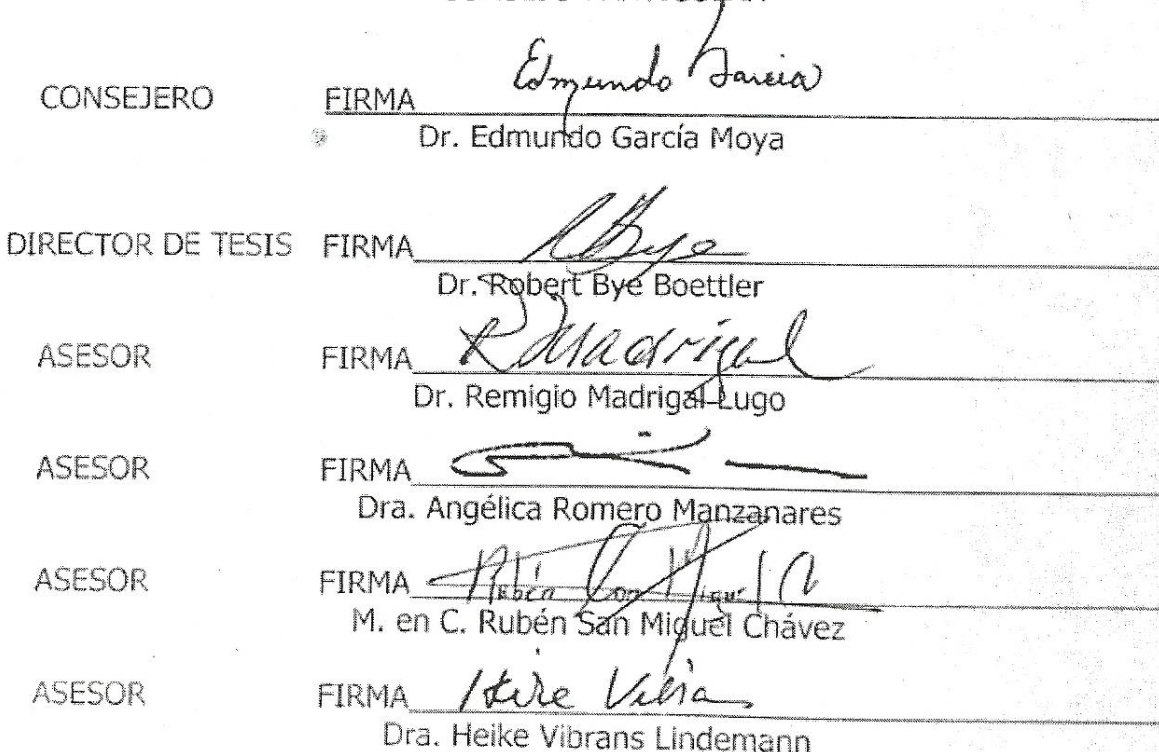 Edmundo Garcia
CONSEJERO FIRMA
Dr. Edmundo García Moya
RBye
DIRECTOR DE TESIS FIRMA
Dr. Robert Bye Boettler
R Madrigal
ASESOR FIRMA
Dr. Remigio Madrigal Lugo
ASESOR FIRMA
Dra. Angélica Romero Manzanares
ASESOR FIRMA Rubén San Miguel C
M. en C. Rubén San Miguel Chávez
ASESOR FIRMA Heike Vibrans
Dra. Heike Vibrans Lindemann